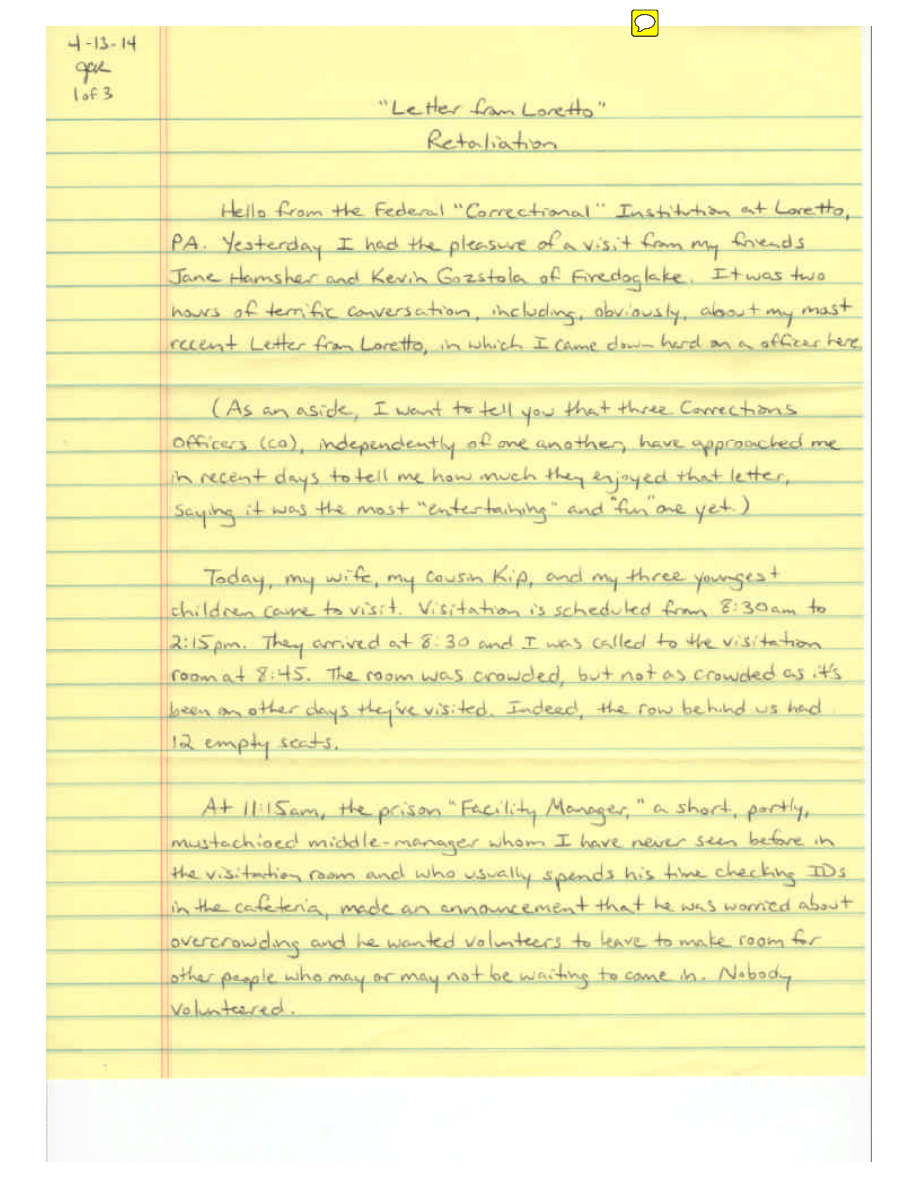 4-13-14
1 of 3
"Letter from Loretto"
Retaliation
Hello from the Federal "Correctional" Institution at Loretto,
PA. Yesterday I had the pleasure of a visit from my friends
Jane Hamsher and Kevin Gozstola of Firedoglake. It was two
hours of terrific conversation, including, obviously, about my most
recent Letter from Loretto, in which I came down hard on a officer here
(As an aside, I want to tell you that three Corrections
Officers (CO), independently of one another, have approached me
in recent days to tell me how much they enjoyed that letter,
saying it was the most "entertaining" and "fun" one yet.)
Today, my wife, my cousin Kip, and my three youngest
children came to visit. Visitation is scheduled from 8:30am to
2:15pm. They arrived at 8:30 and I was called to the visitation
room at 8:45. The room was crowded, but not as crowded as it's
been on other days they've visited. Indeed, the row behind us had
12 empty seats.
At 11:15am, the prison "Facility Manager," a short, portly,
mustachioed middle-manager whom I have never seen before in
the visitation room and who usually spends his time checking IDs
in the cafeteria, made an announcement that he was worried about
overcrowding and he wanted volunteers to leave to make room for
other people who may or may not be waiting to come in. Nobody
volunteered.